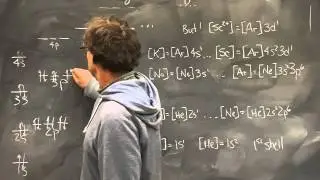 But! [Sc²⁺] = [Ar] 3d¹
4p
4s
[K] = [Ar] 4s¹ ... [Sc] = [Ar] 4s² 3d¹
3p
3s
[Na] = [Ne] 3s¹ ... [Ar] = [Ne] 3s² 3p⁶
2p
2s
= [He] 2s¹ [Ne] = [He] 2s² 2p⁶
1s
= 1s¹ [He] = 1s² 1st shell